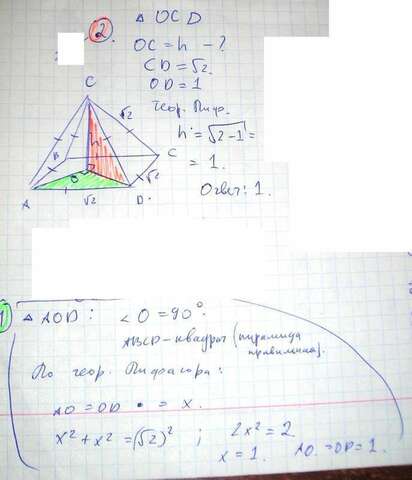 2.
△ OCD
OC = h - ?
CD = √2.
OD = 1
теор. Пиф.
h = √2-1 =
= 1.
Ответ: 1.
C
√2
B
h
C
O
√2
A
√2
D.
1
△ AOD : ∠ O = 90°.
ABCD - квадрат (пирамида
правильная).
По теор. Пифагора:
AO = OD = x.
x² + x² = (√2)² ; 2x² = 2
x = 1. AO = OD = 1.